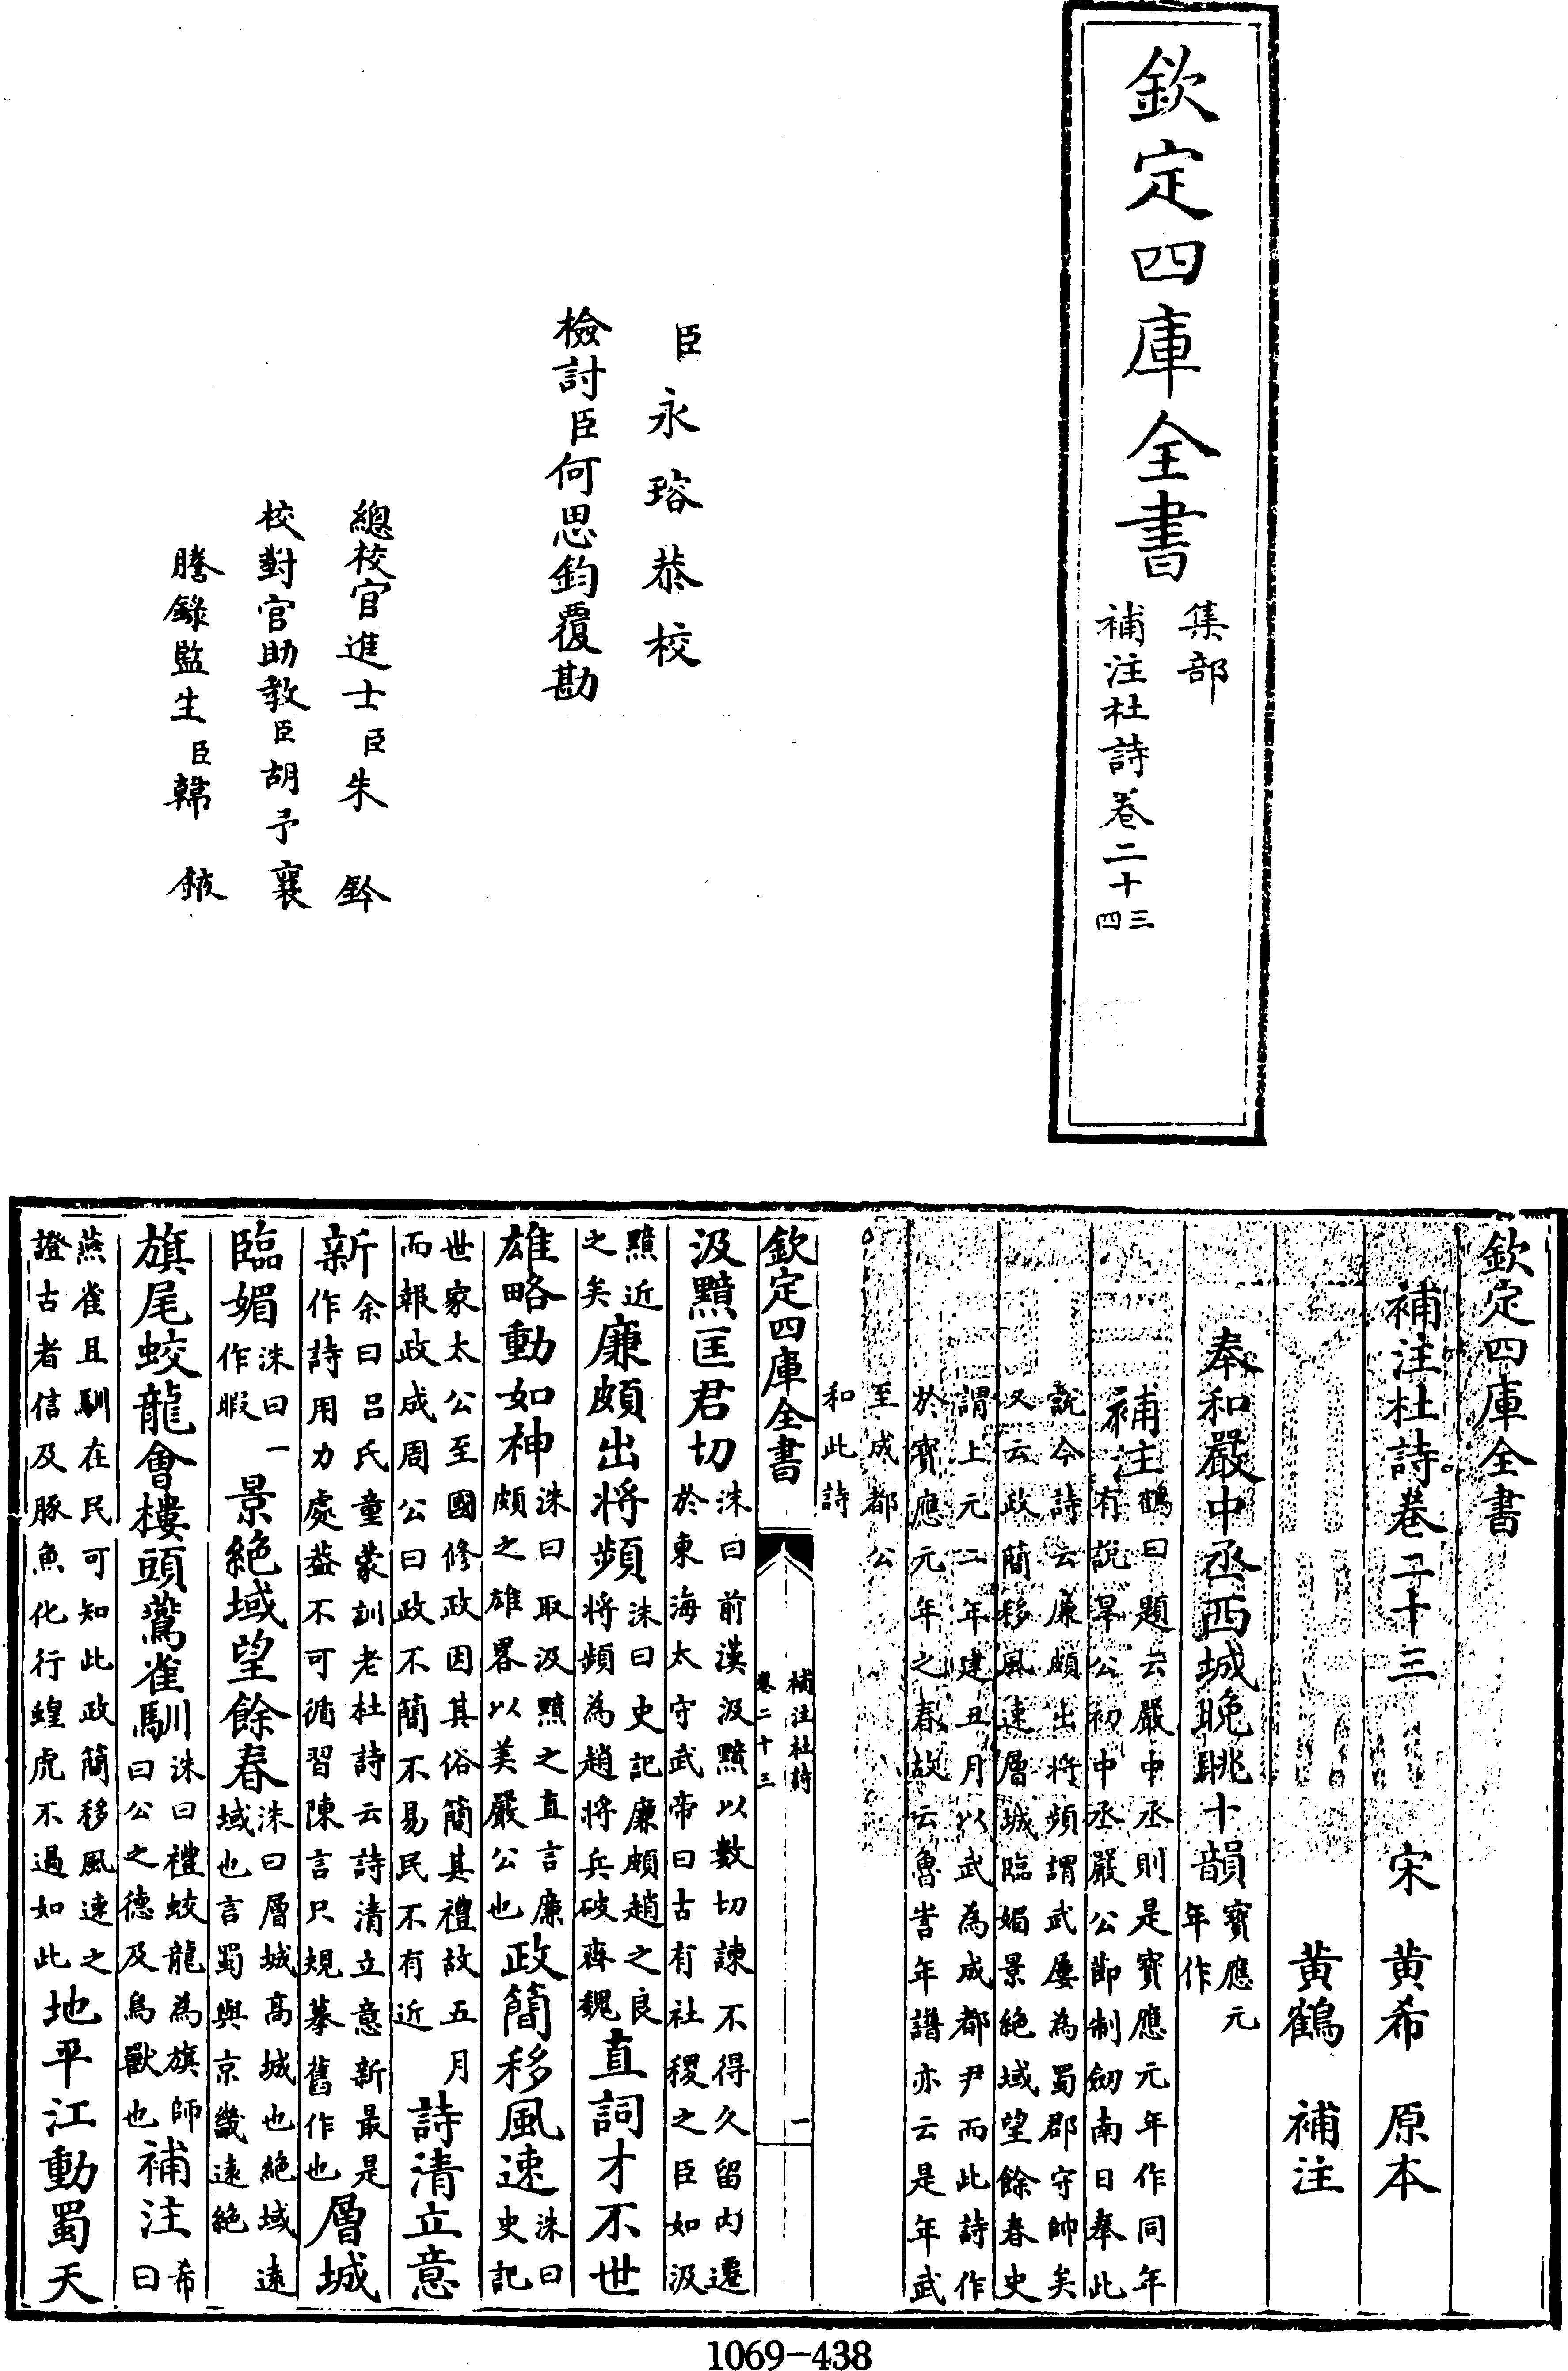 欽定四庫全書
集部
補注杜詩卷二十三四
臣永瑢恭校
檢討臣何思鈞覆勘
總校官進士臣朱鈐
校對官助教臣胡予襄
謄錄監生臣韓鋮
欽定四庫全書
補注杜詩卷二十三 宋 黃希 原本
黃鶴 補注
奉和嚴中丞西城晚眺十韻
寶應元
年作
補注
鶴曰題云嚴中丞則是寶應元年作同年
有說旱公初中丞嚴公節制劒南日奉此
說今詩云廉頗出將頻謂武屢為蜀郡守帥矣
又云政簡移風速層城臨媚景絕域望餘春史
謂上元二年建丑月以武為成都尹而此詩作
於寶應元年之春故云魯訔年譜亦云是年武
至成都公
和此詩
欽定四庫全書
補注杜詩
卷二十三
一
汲黯匡君切
洙曰前漢汲黯以數切諫不得久留内遷
於東海太守武帝曰古有社稷之臣如汲
黯近
之矣
廉頗出將頻
洙曰史記廉頗趙之良
將頻為趙將兵破齊魏
直詞才不世
雄略動如神
洙曰取汲黯之直言廉
頗之雄畧以美嚴公也
政簡移風速
洙曰
史記
世家太公至國修政因其俗簡其禮故五月
而報政成周公曰政不簡不易民不有近
詩清立意
新
余曰呂氏童蒙訓老杜詩云詩清立意新最是
作詩用力處葢不可循習陳言只規摹舊作也
層城
臨媚
洙曰一
作暇
景絕域望餘春
洙曰層城高城也絕域遠
域也言蜀與京畿遠絕
旗尾蛟龍會樓頭鷰雀馴
洙曰禮蛟龍為旗師
曰公之德及鳥獸也
補注
希
曰
燕雀且馴在民可知此政簡移風速之
證古者信及豚魚化行蝗虎不過如此
地平江動蜀天
1069-438